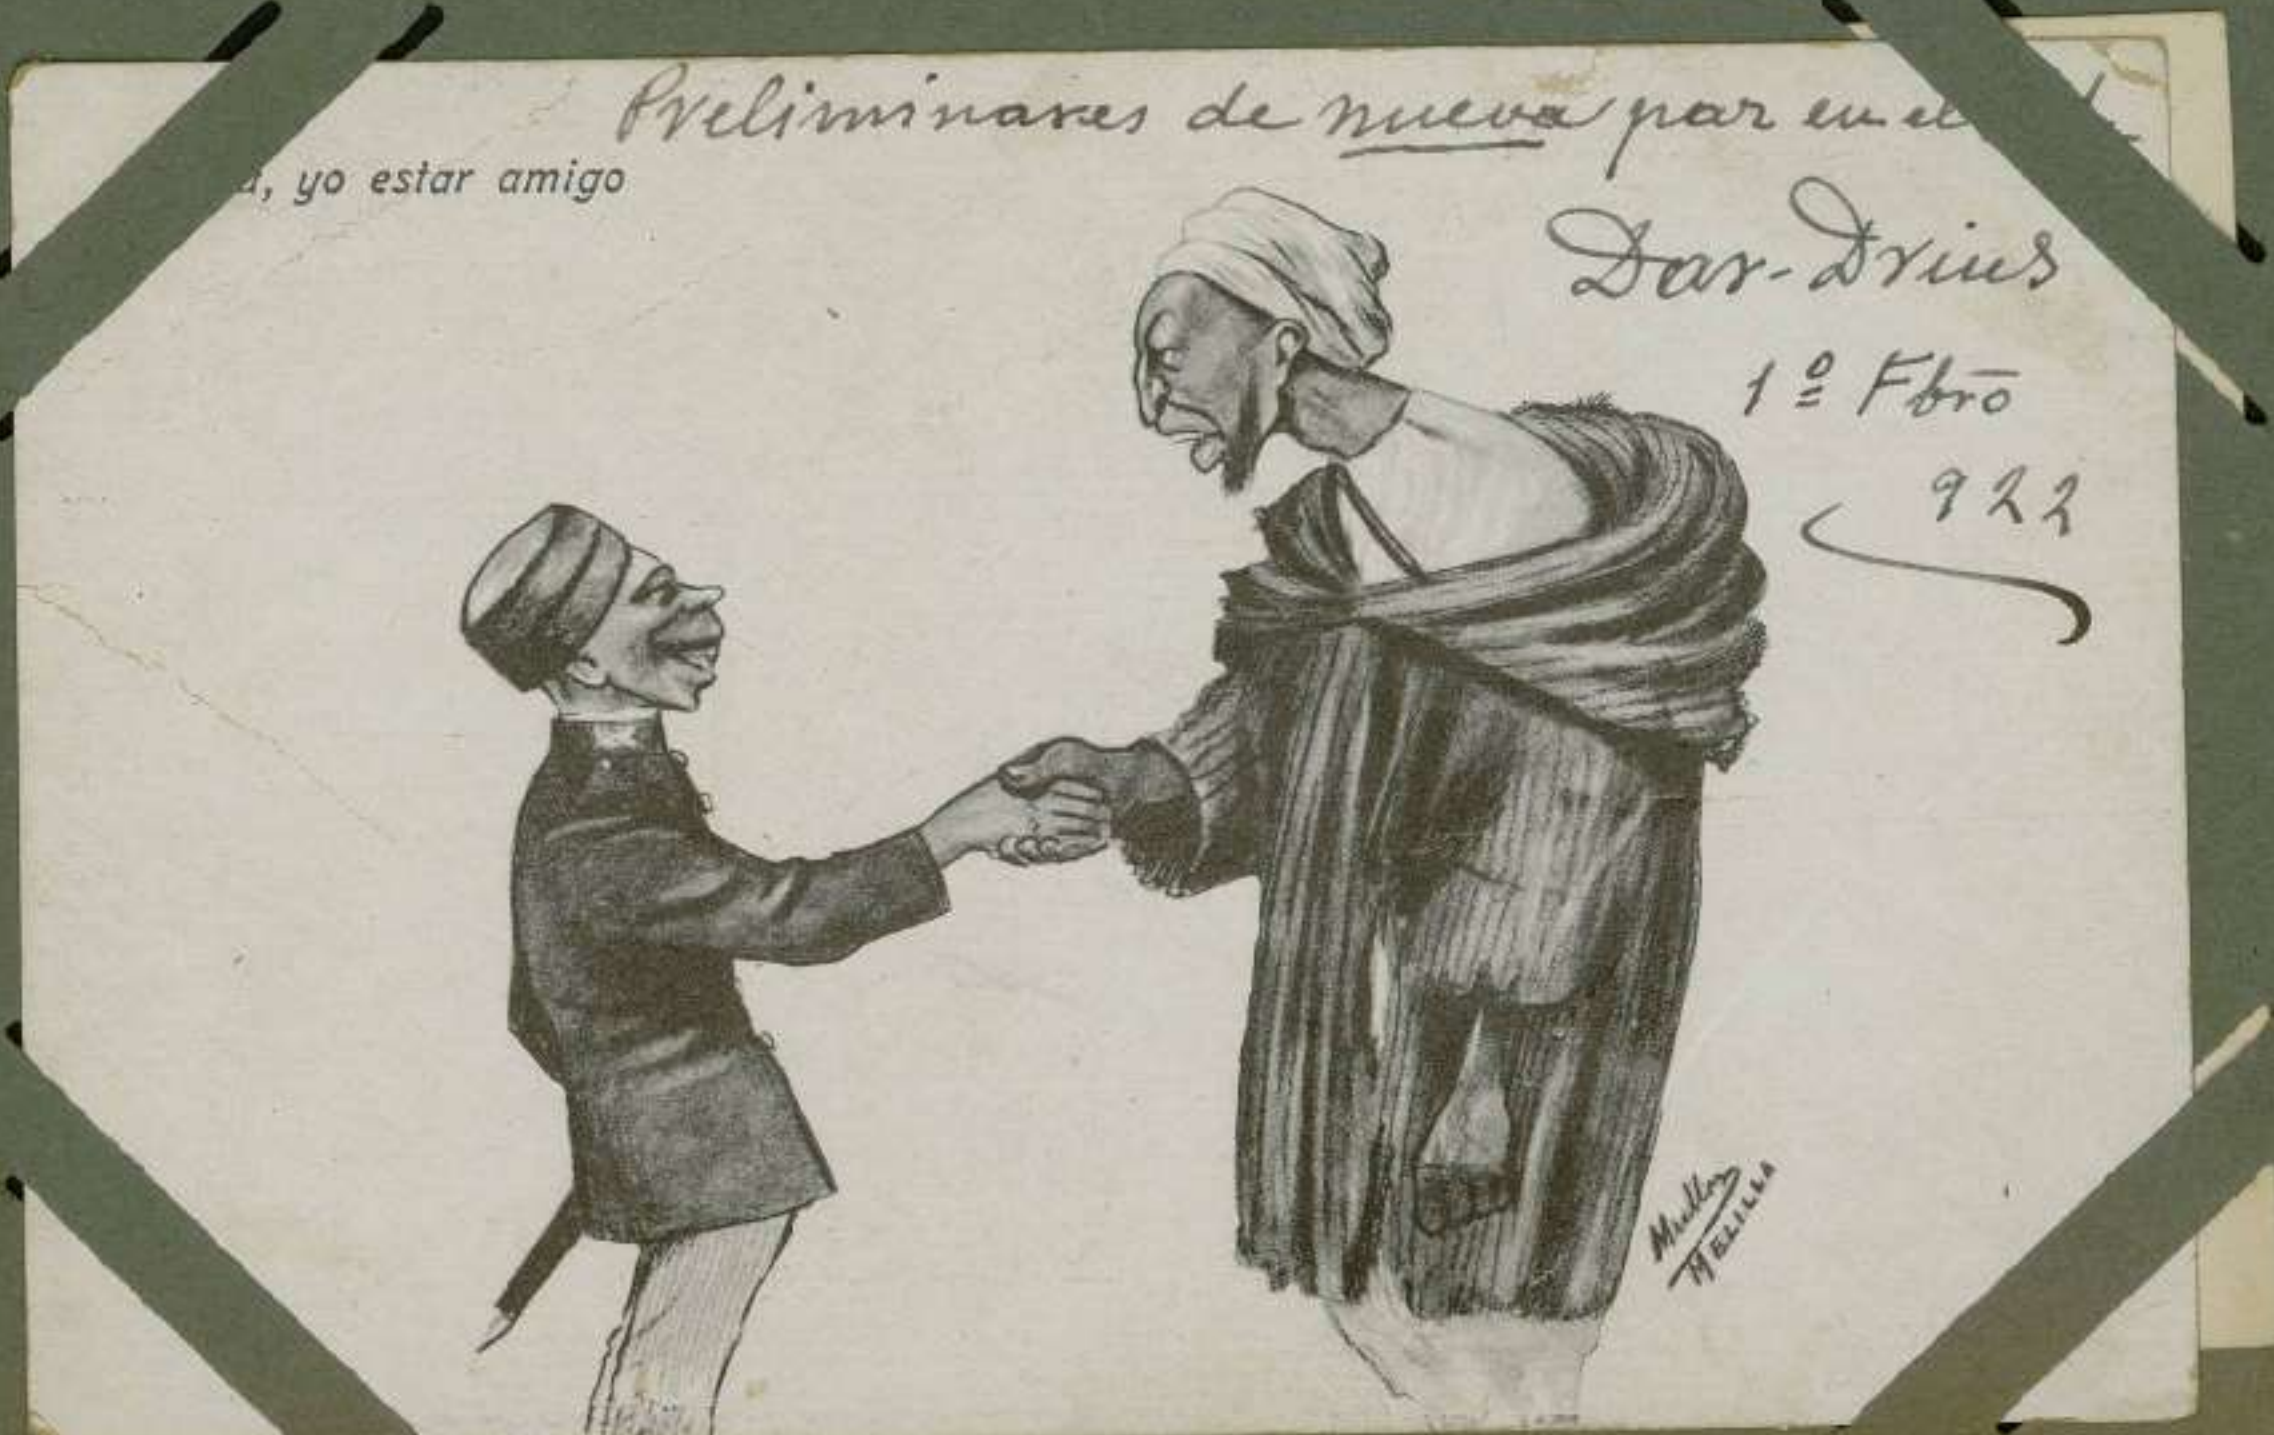 Preliminares de nueva paz en el
, yo estar amigo
Dar-Drius
1º Fbrō
922
MELILLA